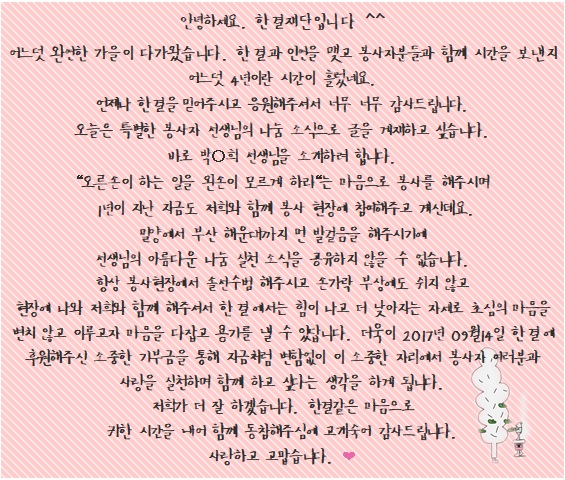 안녕하세요. 한결재단입니다 ^^
어느덧 완연한 가을이 다가왔습니다. 한결과 인연을 맺고 봉사자분들과 함께 시간을 보낸지
어느덧 4년이란 시간이 흘렀네요.
언제나 한결을 믿어주시고 응원해주셔서 너무 너무 감사드립니다.
오늘은 특별한 봉사자 선생님의 나눔 소식으로 글을 게재하고 싶습니다.
바로 박○희 선생님을 소개하려 합니다.
“오른손이 하는 일을 왼손이 모르게 하라“는 마음으로 봉사를 해주시며
1년이 지난 지금도 저희와 함께 봉사 현장에 참여해주고 계신데요.
밀양에서 부산 해운대까지 먼 발걸음을 해주시기에
선생님의 아름다운 나눔 실천 소식을 공유하지 않을 수 없습니다.
항상 봉사현장에서 솔선수범 해주시고 손가락 부상에도 쉬지 않고
현장에 나와 저희와 함께 해주셔서 한결에서는 힘이 나고 더 낮아지는 자세로 초심의 마음을
변치 않고 이루고자 마음을 다잡고 용기를 낼 수 있답니다. 더욱이 2017년 09월14일 한결에
후원해주신 소중한 기부금을 통해 지금처럼 변함없이 이 소중한 자리에서 봉사자 여러분과
사랑을 실천하며 함께 하고 싶다는 생각을 하게 됩니다.
저희가 더 잘 하겠습니다. 한결같은 마음으로
귀한 시간을 내어 함께 동참해주심에 고개숙여 감사드립니다.
사랑하고 고맙습니다.